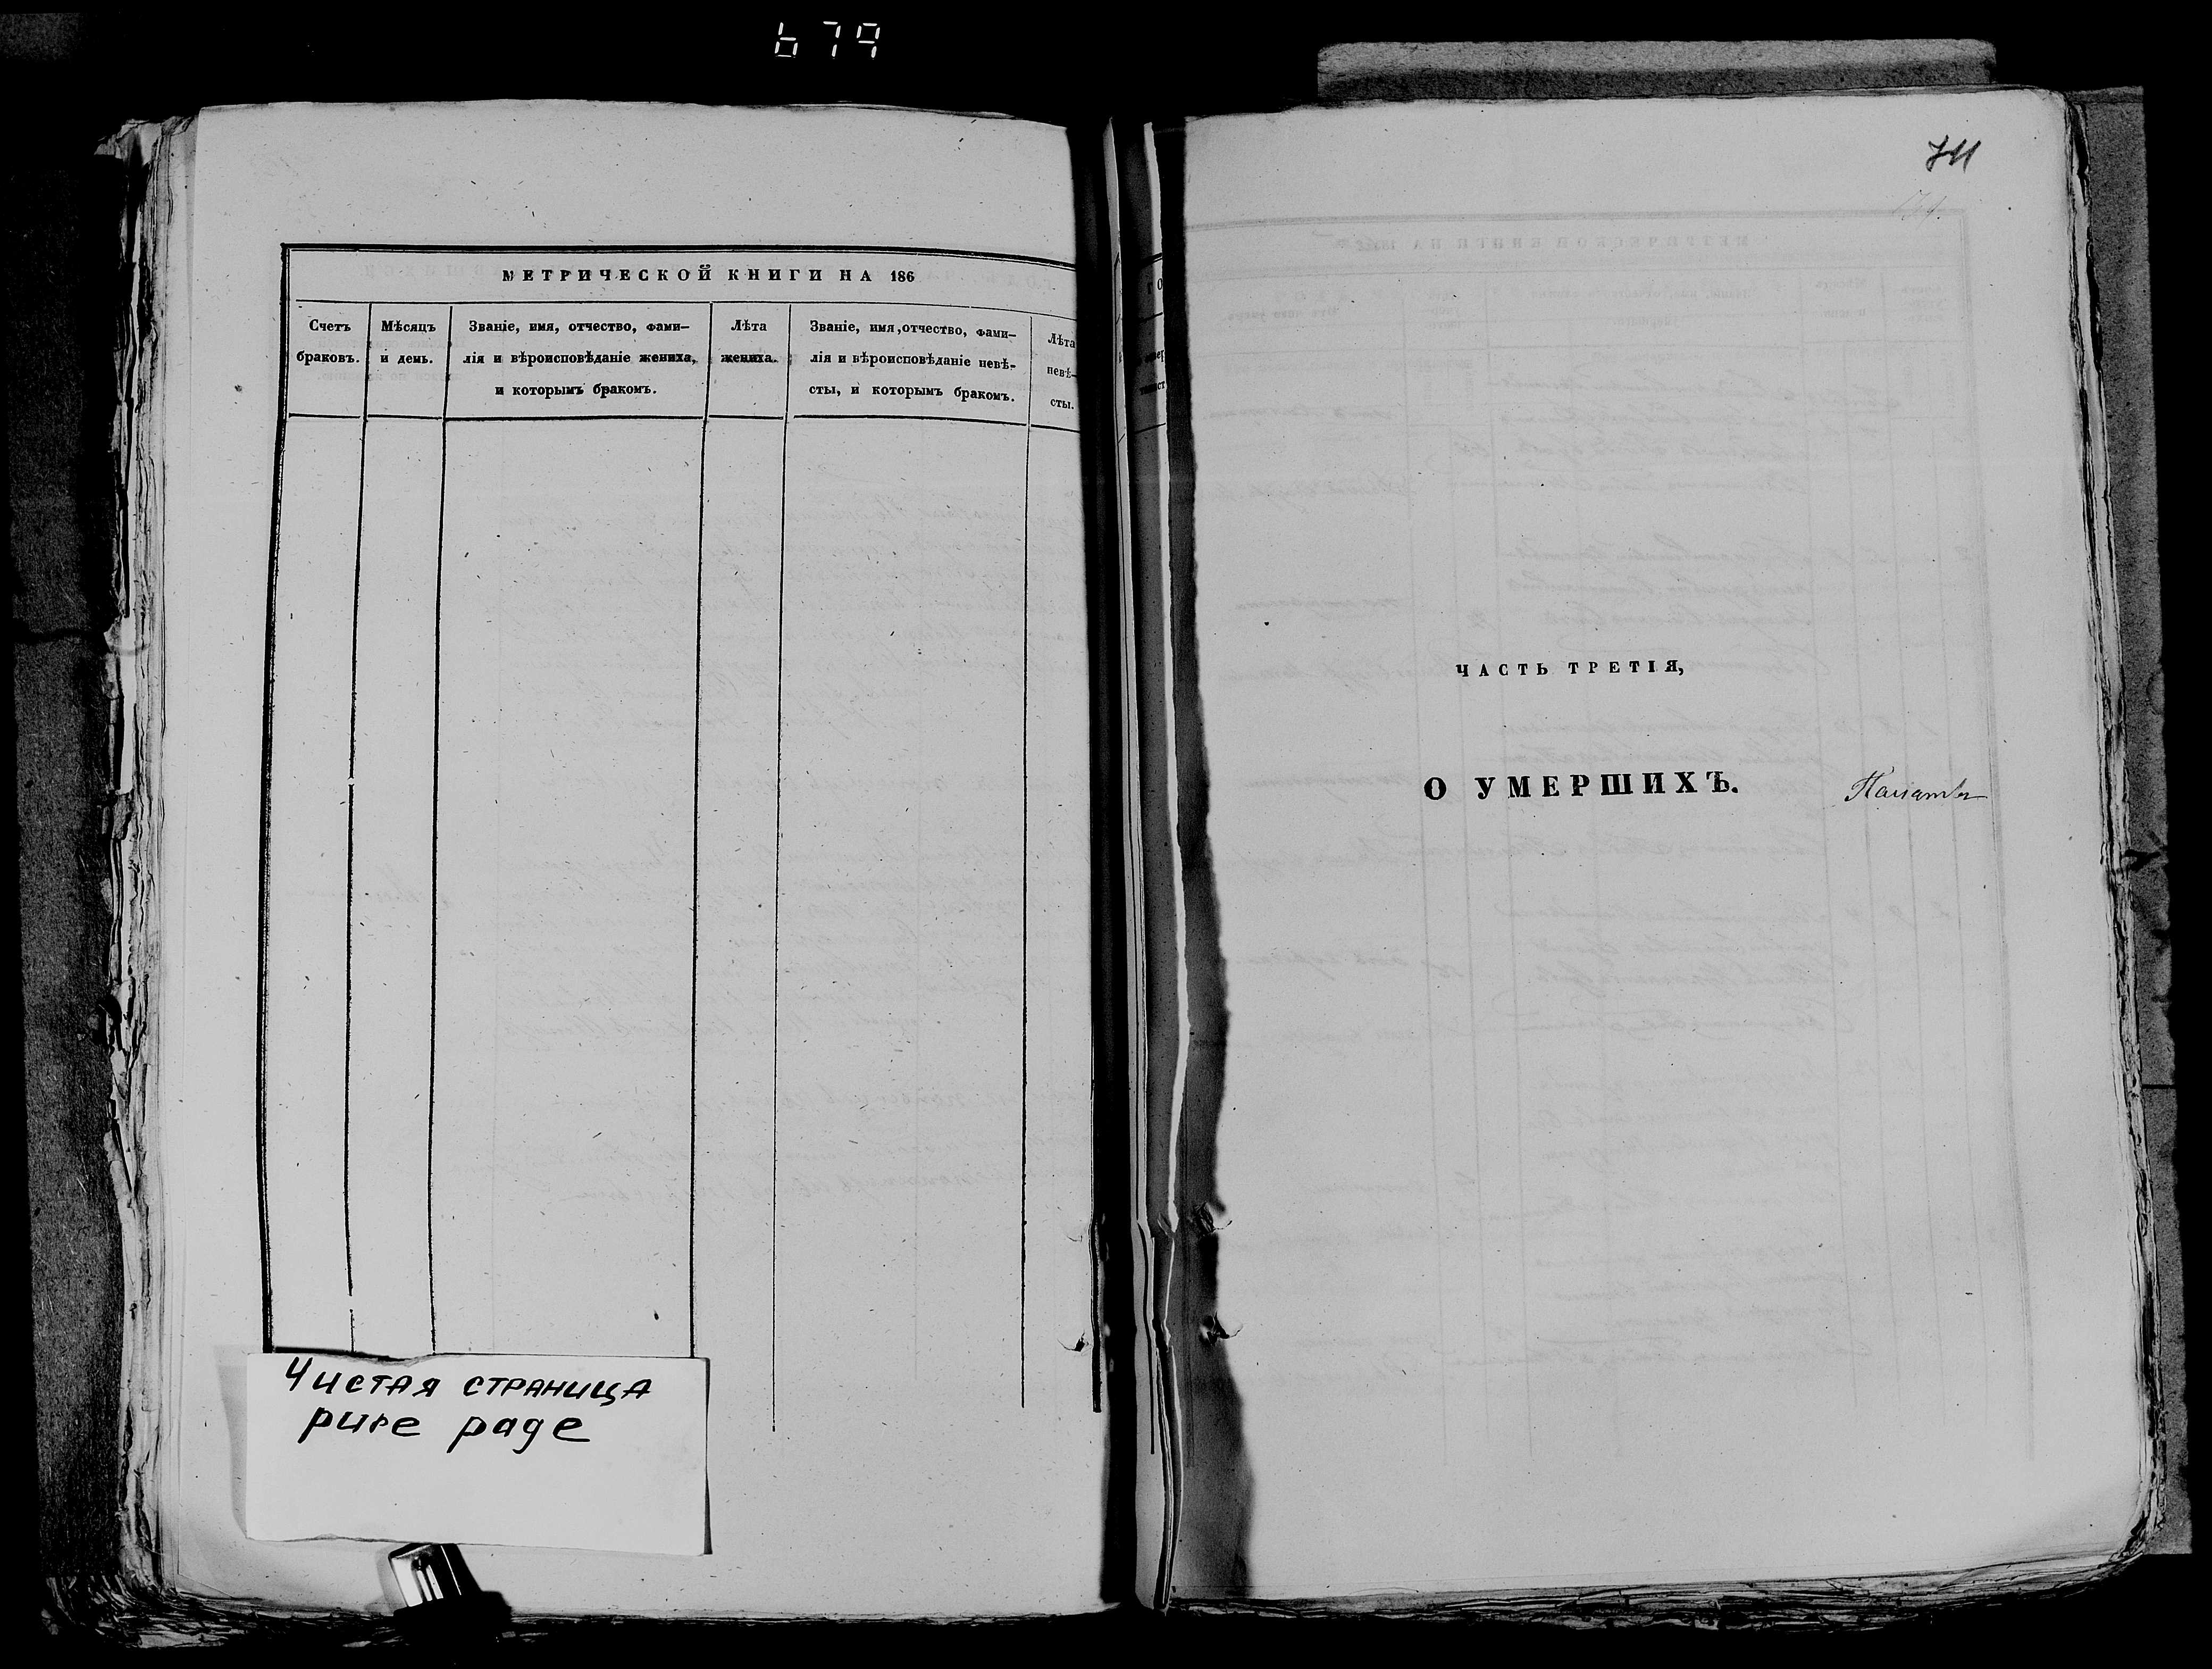 679
МЕТРИЧЕСКОЙ КНИГИ НА 186
Счетъ
браковъ.
Мѣсяцъ
и день.
Званіе, имя, отчество, фами-
лія и вѣроисповѣданіе жениха,
и которымъ бракомъ.
Лѣта
жениха.
Званіе, имя, отчество, фами-
лія и вѣроисповѣданіе невѣ-
сты, и которымъ бракомъ.
Лѣта
невѣ-
сты.
Чистая страница
pure page
ЧАСТЬ ТРЕТІЯ,
О УМЕРШИХЪ.